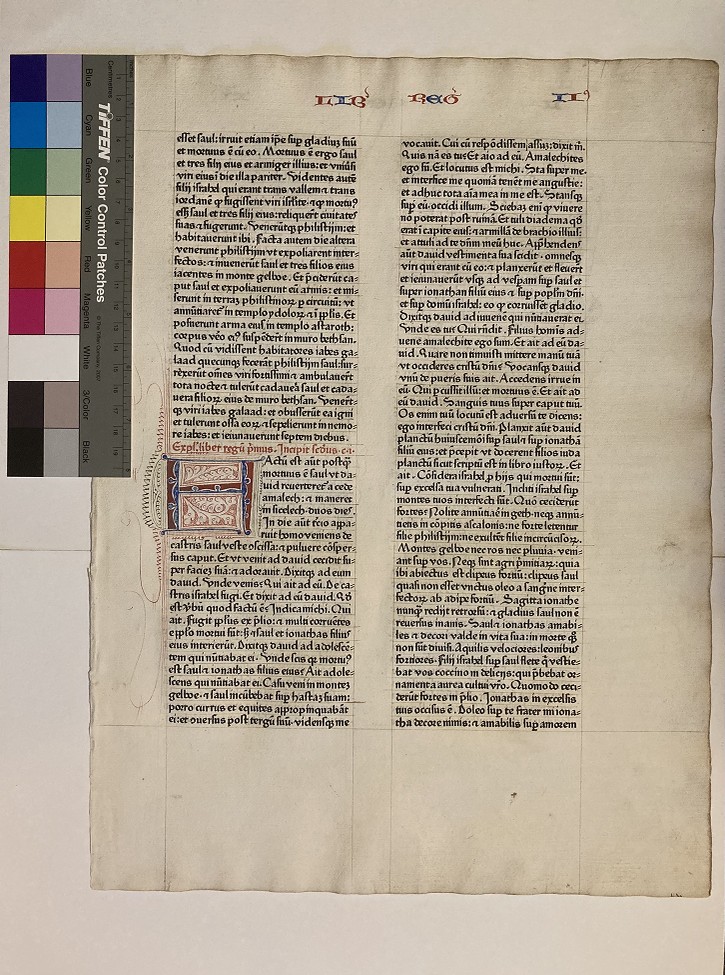 LIBˀ REGOꝜ II
esset saul: irruit etiam ip̄e sup̲ gladiuꝫ suū
et mortuus ē cū eo. Mortuus ē ergo saul
et tres filij eius et armiger illius: et vniūsi
viri eius: i die illa pariter. Videntes autē
filij israhel qui erant trans vallem ⁊ trans
iordanē ꝙ fugissent viri isr̄lite ⁊ ꝙ mortuꝰ
eēt saul ⁊ tres filij eius: reliquer̄t ciuitates
suas ⁊ fugerunt. Venerūtqꝫ philistijm: et
habitauerunt ibi. Facta autem die altera
venerunt philistijm vt expoliarent inter-
fectos: ⁊ inuenerūt saul et tres filios eius
iacentes in monte gelboe. Et p̄ciderūt ca-
put saul et expoliauerunt eū armis: et mi-
serunt in terraꝫ philistinoꝝ p̲ circuitū: vt
annūtiaret᷑ in templo ydoloꝝ ⁊ in pp̄lis. Et
posuerunt arma eius in templo astaroth:
corpus v̄o eiꝰ suspēderūt in muro bethsan.
Quod cū vidissent habitatores iabes ga-
laad quecunqꝫ fecerāt philistijm saul: sur-
rexerūt om̄es viri fortissimi ⁊ ambulauerūt
tota nocte ⁊ tulerūt cadauer saul et cada-
uera filioꝝ eius de muro bethsan. Venerūt-
qꝫ viri iabes galaad: et obusserūt ea igni
et tulerunt ossa eoꝝ ⁊ sepelierunt in nemo-
re iabes: et ieiunauerunt septem diebus.
Expl. liber regū p̄mus. Incipit scd̄us. ca.
FActū est aūt postqꝫ
mortuus ē saul vt da-
uid reuerteret᷑ a cede
amalech: ⁊ maneret
in sicelech duos dies.
In die aūt t̄cio appa-
ruit homo veniens de
castris saul veste oscissa: ⁊ puluere cōsper-
sus caput. Et vt venit ad dauid cecidit su-
per faciez suā: ⁊ adorauit. Dixitqꝫ ad eum
dauid. Vnde venis? Qui ait ad eū. De ca-
stris israhel fugi. Et dixit ad eū dauid. Qd̄
est v̄bū quod factū ē? Indica michi. Qui
ait. Fugit pp̄lus ex p̄lio: ⁊ multi corruētes
e pp̄lo mortui sūt: sꝫ ⁊ saul et ionathas filius
eius interierūt. Dixitqꝫ dauid ad adolescē-
tem qui nūtiabat ei. Vnde scis qꝛ mortuꝰ
est saul ⁊ ionathas filius eius? Ait adole-
scens qui nūtiabat ei. Casu veni in montez
gelboe. ⁊ saul incūbebat sup̲ hastaꝫ suam:
porro currus et equites appropinquabāt
ei: et ouersus post tergū suū. vidensqꝫ me
vocauit. Cui cū respōdissem assuꝫ: dixit m̄.
Quis nā es tu? Et aio ad eū. Amalechites
ego sū. Et locutus est michi. Sta super me.
et interfice me quoniā tenēt me angustie:
et adhuc tota aīa mea in me est. Stansqꝫ
sup̲ eū occidi illum. Sciebaꝫ eni ꝙ viuere
no poterat post ruinā. Et tuli diadema qd̄
erat i capite eius: ⁊ armillā de brachio illius:
et attuli ad te dn̄m meū huc. App̄hendens
aūt dauid vestimenta sua scidit. omnesqꝫ
viri qui erant cū eo: ⁊ planxerūt et fleuerūt
et ieiunauerūt vsqꝫ ad vesp̲am sup̲ saul et
super ionathan filiū eius ⁊ sup̲ pop̄lm dn̄i
et sup̲ domū israhel: eo ꝙ corruisset gladio.
Dixitqꝫ dauid ad iuuenē qui nūtiauerat ei.
Vnde es tu? Qui rn̄dit. Filius homīs ad-
uene amalechite ego sum. Et ait ad eū da-
uid. Quare non timuisti mittere manū tuā
vt occideres cristū dn̄i? Vocansqꝫ dauid
vnū de pueris suis ait. Accedens irrue in
eū. Qui p̲cussit illū: et mortuus ē. Et ait ad
eū dauid. Sanguis tuus super caput tuū.
Os enim tuū locutū est aduersū te dicens:
ego interfeci cristū dn̄i. Planxit aūt dauid
planctū huiuscemōi sup̲ saul ⁊ sup̲ ionathā
filiū eius: et p̄cepit vt docerent filios iuda
planctū sicut scriptū est in libro iustoꝝ. Et
ait. Cōsidera israhel p̲ hijs qui mortui sūt:
sup̲ excelsa tua vulnerati. Incliti israhel sup̲
montes tuos interfecti sūt. Quō ceciderūt
fortes? Nolite annūtiare in geth: neqꝫ annū-
tiens in cōpitis ascalonis: ne forte letentur
filie philistijm: ne exultēt filie incircūcisoꝝ.
Montes gelboe nec ros nec pluuia. veni-
ant sup̲ vos. Neqꝫ sint agri p̄mitiaꝝ: quia
ibi abiectus est clipeus fortiū: clipeus saul
quasi non esset vnctus oleo a sangūe inter-
fectoꝝ. ab adipe fortiū. Sagitta ionathe
nunqꝫ redijt retrorsū: ⁊ gladius saul non ē
reuersus inanis. Saul ⁊ ionathas amabi-
les ⁊ decori valde in vita sua: in morte qꝫ
non sūt diuisi. Aquilis velociores: leonibus
fortiores. Filij israhel sup̲ saul flete q̄ vestie-
bat vos coccino in delicijs: qui p̄bebat or-
namenta aurea cultui vr̄o. Quomodo ceci-
derūt fortes in p̄lio. Jonathas in excelsis
tuis occisus ē. Doleo sup̲ te frater mi iona-
tha decore nimis: ⁊ amabilis sup̲ amorem
TIFFEN Color Control Patches
Centimetres
Blue
Cyan
Green
Yellow
Red
Magenta
White
3/Color
Black